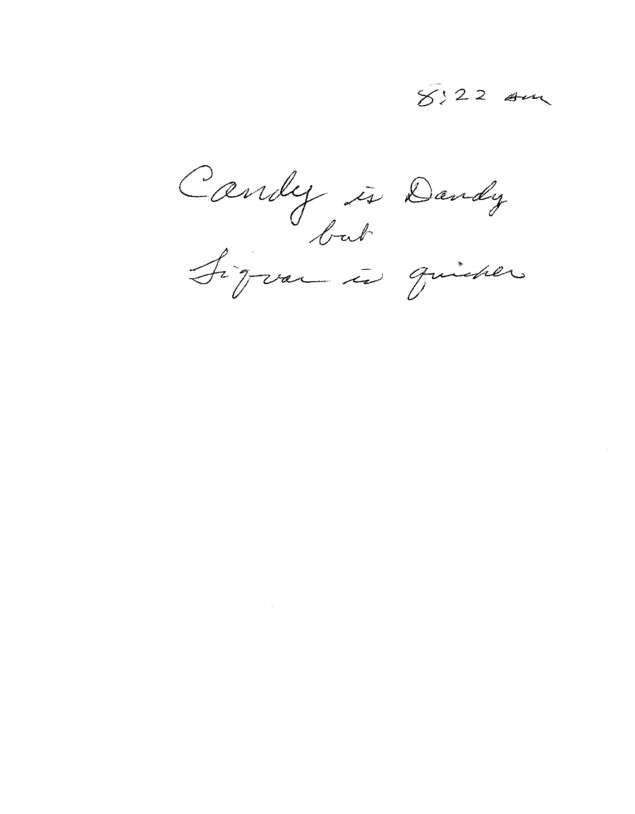 8:22 am
Candy is Dandy
but
Liquor is quicker